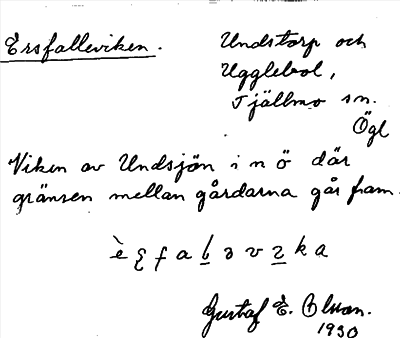 Ersfalleviken.
Undstorp och
Ugglebol,
Tjällmo sn.
Ögl
Viken av Undsjön i n ö där
gränsen mellan gårdarna går fram.
Gustaf E. Olsson.
1930